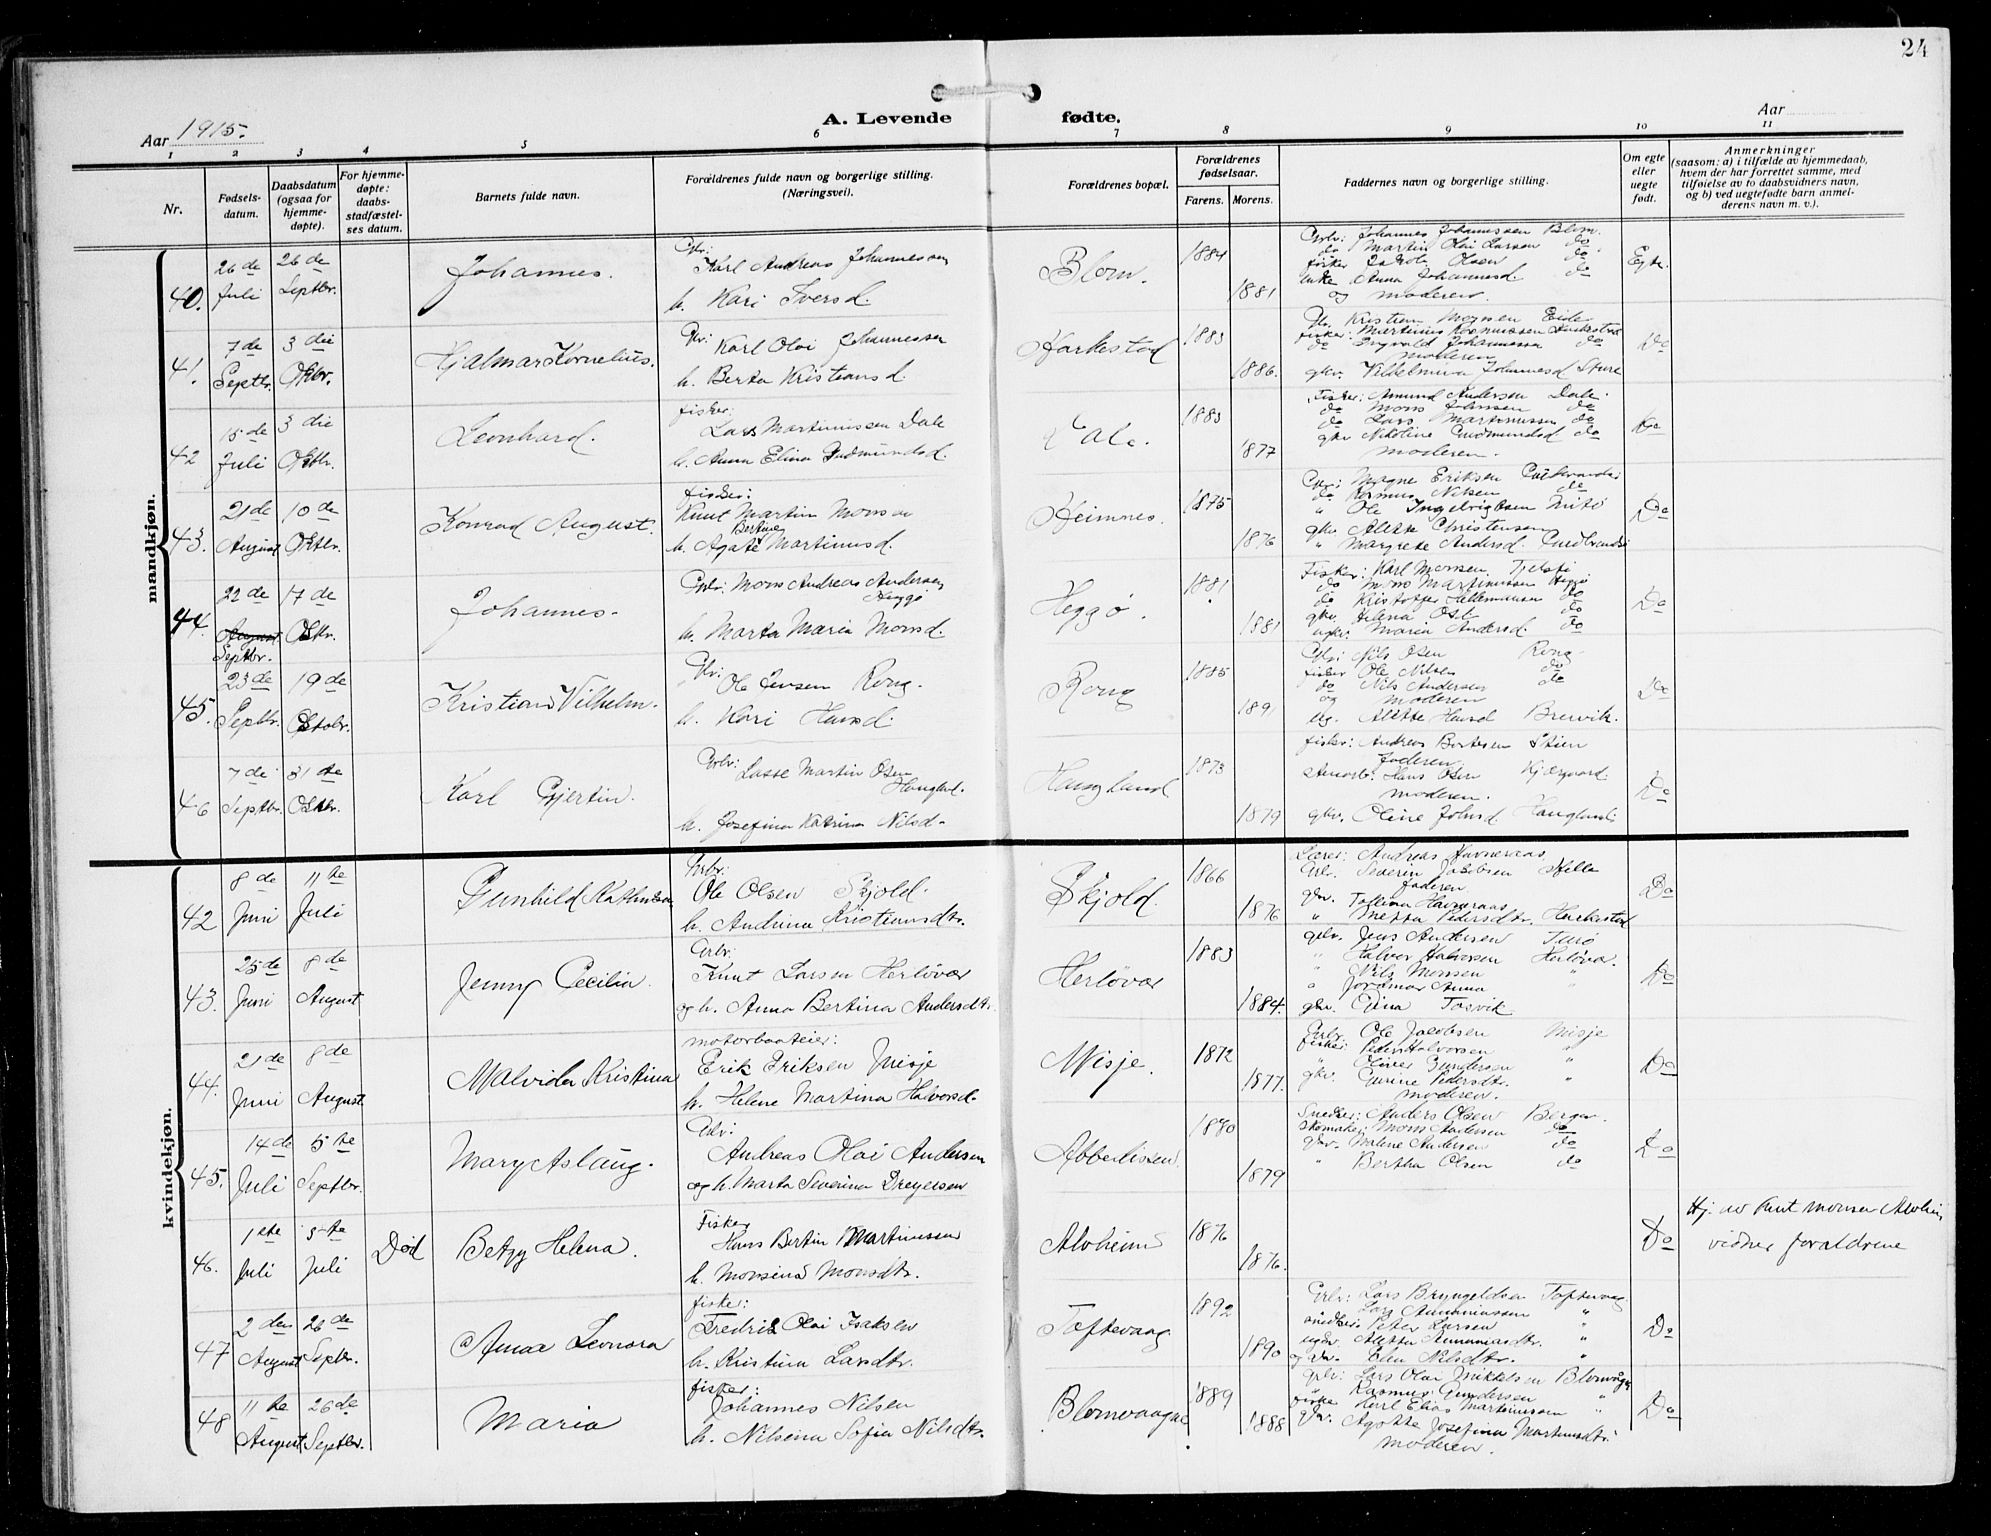 24
Aar 1915.
A. Levende fødte.
Aar
1 2 3 4 5 6 7 8 9 10 11
Nr.
Fødsels-
datum.
Daabsdatum
(ogsaa for
hjemme-
døpte).
For hjemme-
døpte:
daabs-
stadfæstel-
ses datum.
Barnets fulde navn.
Forældrenes fulde navn og borgerlige stilling.
(Næringsvei).
Forældrenes bopæl.
Forældrenes
fødselsaar.
Farens. Morens.
Faddernes navn og borgerlige stilling.
Om egte
eller
uegte
født.
Anmerkninger
(saasom: a) i tilfælde av hjemmedaab,
hvem der har forrettet samme, med
tilføielse av to daabsvidners navn,
og b) ved uegtefødte barn anmel-
derens navn m. v.).
mandkjøn.
40.
26de Juli
26de Septbr.
Johannes.
Grbr: Karl Andreas Johannessen
h. Kari Iversd.
Blom.
1884
1881
Grbr: Johannes Johannessen Blom.
do Martin Olai Larsen do
fisker Jakob Olsen do
enke Anna Johannesd. do
og moderen.
Egte.
41.
7de Septbr.
3die Oktbr.
Hjalmar Kornelius.
Gbr: Karl Olai Johannessen
h. Berta Kristiansd.
Harkestad
1883
1886.
Gbr. Kristian Monsen Eide
fisker: Martinus Rasmussen Harkestad
do Ingvald Johannessen do
moderen
gkv. Vilhelmina Johannesd Sture
Do
42
15de Juli
3die Oktbr.
Leonhard.
fisker:
Lars Martinussen Dale
h. Anna Elina Gudmundsd.
Dale.
1883
1877
Fisker: Amund Andersen Dale.
do Mons Johnsen do
do Lars Martinussen do
gkv Nikoline Gudmundsd do
moderen.
Do
43.
21de August
10de Oktbr.
Konrad August.
fisker:
Knut Martin Monsen
Bertine
h. Agate Martinusd.
Heimnes.
1875
1876
Gbr: Magne Eriksen
do Rasmus Nilsen do
" Ole Ingebrigtsen
gkv. Alette Christensen
" Margrete Andersd.
Do
44.
22de August Septbr.
17de Oktbr.
Johannes.
Grbr: Mons Andreas Andersen
Heggø
h. Marta Maria Monsd.
Heggø
1881
1881
Fisker: Karl Monsen
do Mons Martinussen Heggø
do Kristoffer Hellemunsen do
gkv. Helena Ols. do
ugkv. Maria Andersd. do
Do
45.
23de Septbr.
19de Oktobr.
Kristian Vilhelm.
Gbr:
Ole Jensen Rong.
h. Kari Hansd.
Rong
1885
1891
Gbr: Nils Olsen Rong
fisker Ole Nilsen do
do Nils Andersen do
og moderen
ug. Alette Hansd Brervik.
Do
46
7de Septbr.
31te Oktbr.
Karl Gjertin.
Grbr:
Lasse Martin Olsen
Haugland.
h. Josefina Katrina Nilsd.
Haugland
1873
1879
fisker: Andreas Bertesen Stien
faderen.
Hans Olsen Kjærgaard.
moderen.
gkv. Oline Johnsd Haugland
Do
kvindekjøn.
42
8de Juni
11te Juli
Gunhild Kathinka
Grbr.
Ole Olsen Skjold.
h. Andrina Kristiansdtr.
Skjold.
1866
1876
Lærer: Andreas Havneraas
Grbr. Severin Jacobsen Hella
faderen.
gkv. Tollina Havneraas
" Metta Pedersdtr. Harkestad
Do
43.
25de Juni
8de August
Jenny Cecilia.
Grbr.
Knut Larsen Herløvær
og h. Anna Bertina Andersdtr.
Herløvær
1883
1884.
grbr. Jens Andersen Turø
" Halvor Halvorsen Herløvær.
" Nils Monsen "
" Jordmor Anna "
gkv. Gjina Tosvik
Do
44.
21de Juni
8de August
Malvida Kristina
motorbaateier:
Erik Eriksen Misje
h. Helene Martina Halvorsd.
Misje.
1872
1877.
Grbr. Ole Jacobsen Misje
fisker: Peder Halvorsen "
" Oliver Gundersen "
gkv. Gurine Pedersdtr. "
moderen.
Do
45.
14de Juli
5te Septbr.
Mary Aslaug.
Grbr:
Andreas Olai Andersen
og h. Marta Severina Dreyersen
Abbedissen.
1880
1879
Snedker: Anders Olsen Bergen.
Skomaker: Mons Andersen do
gkv. Malene Andersen do
" Bertha Olsen do
Do
46.
1ste Juli
5te Juli
Død
Betzy Helena.
Fisker
Hans Bertin Martinussen
h. Monsina Monsdtr.
Alvheim
1876
1876.
Do
Hj. av Knut Monsen Alvheim
vidner foraldrene
47
2den August
26de Septbr.
Anna Leonora
fisker:
Fredrik Olai Isaksen
h. Kristina Larsdtr.
Toftevaag.
1892
1890
Grbr: Lars Bryngeldsen Toftevaag
Lars "
snedker Peter Larsen "
ugkv. Aletta "
og gkv. Elen Nilsdtr. "
Do
48
11te August
26de Septbr.
Maria
fisker:
Johannes Nilsen
h. Nilsina Sofia Nilsdtr.
Blomvaagne
1889
1888
Grbr: Lars Olai Mikkelsen Blomvåg
" Rasmus Gundersen "
fisker Karl Elias Martinussen "
gkv. Agothe Josefina Martinusdtr.
moderen.
Do